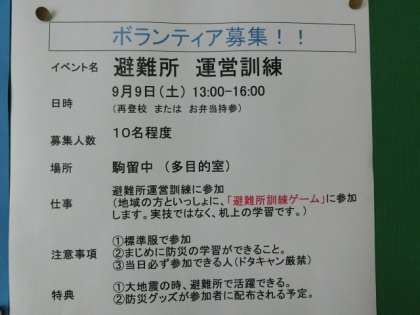 ボランティア募集！！
イベント名 避難所 運営訓練
日時 9月9日（土） 13:00-16:00
（再登校 または お弁当持参）
募集人数 10名程度
場所 駒留中 （多目的室）
仕事 避難所運営訓練に参加
（地域の方といっしょに、「避難所訓練ゲーム」に参加
します。実技ではなく、机上の学習です。）
注意事項 ①標準服で参加
②まじめに防災の学習ができること。
③当日必ず参加できる人（ドタキャン厳禁）
特典 ①大地震の時、避難所で活躍できる。
②防災グッズが参加者に配布される予定。